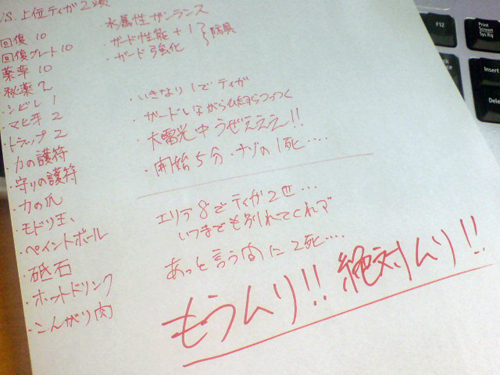 VS. 上位ティガ2頭
回復 10
回復グレート 10
薬草 10
秘薬 2
・シビレ 1
・マヒ牙 2
・トラップ 2
・力の護符
・守りの護符
・力の爪
・モドリ玉、
・ペイントボール
・砥石
・ホットドリンク
・こんがり肉
水属性ガンランス
・ガード性能+1
・ガード強化
防具
・いきなり1でティガ
・ガードしながら
・大雷光虫うぜえええ!!
・開始5分、ナゾの1死....
エリア8でティガ2匹...
いつまでも別れてくれず
あっと言う間に2死....
もうムリ!!絶対ムリ!!
F12
Print Screen
SysRq
Insert
Delete